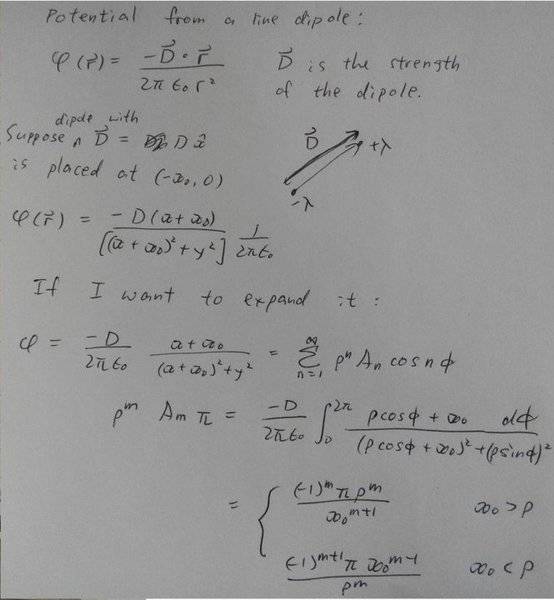 Potential from a line dipole:
φ(r⃗) = -D⃗·r⃗ / 2πε₀r²
D⃗ is the strength
of the dipole.
dipole with
Suppose ∧ D⃗ = D x̂
is placed at (-x₀, 0)
D⃗
+λ
-λ
φ(r⃗) = -D(x+x₀) / [(x+x₀)²+y²] 1/2πε₀
If I want to expand it:
φ = -D/2πε₀ x+x₀ / (x+x₀)²+y² = ∞∑n=1 ρⁿ Aₙ cos nϕ
ρᵐ Aₘ π = -D/2πε₀ ∫₀^2π ρcosϕ + x₀ dϕ / (ρcosϕ + x₀)² + (ρsinϕ)²
= { (-1)ᵐ π ρᵐ / x₀ᵐ⁺¹ x₀ > ρ
(-1)ᵐ⁺¹ π x₀ᵐ⁻¹ / ρᵐ x₀ < ρ